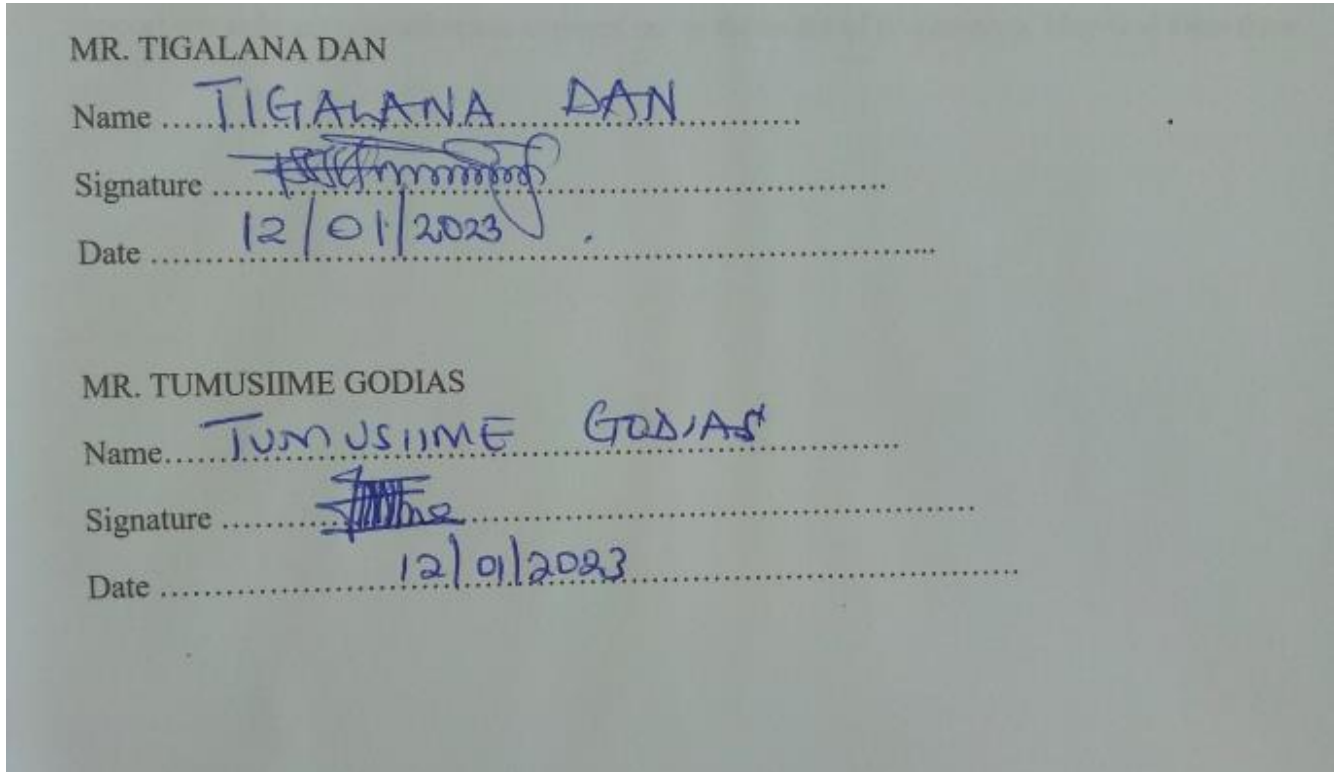 MR. TIGALANA DAN
Name ..... TIGALANA DAN ..............
Signature ............................................................
Date ...... 12/01/2023 ..................................
MR. TUMUSIIME GODIAS
Name...... TUMUSIIME GODIAS ..............
Signature ............................................................
Date ...................... 12/01/2023 ..................................